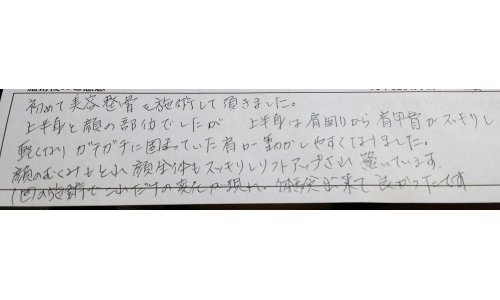 初めて美容整骨を施術して頂きました。
上半身と顔の部位でしたが 上半身は肩回りから肩甲骨がスッキリし
軽くなり ガチガチに固まっていた肩が動かしやすくなりました。
顔のむくみもとれ 顔全体もスッキリしリフトアップされ 驚いています。
1回の施術でこれだけの変化が現れ、体験出来て良かったです